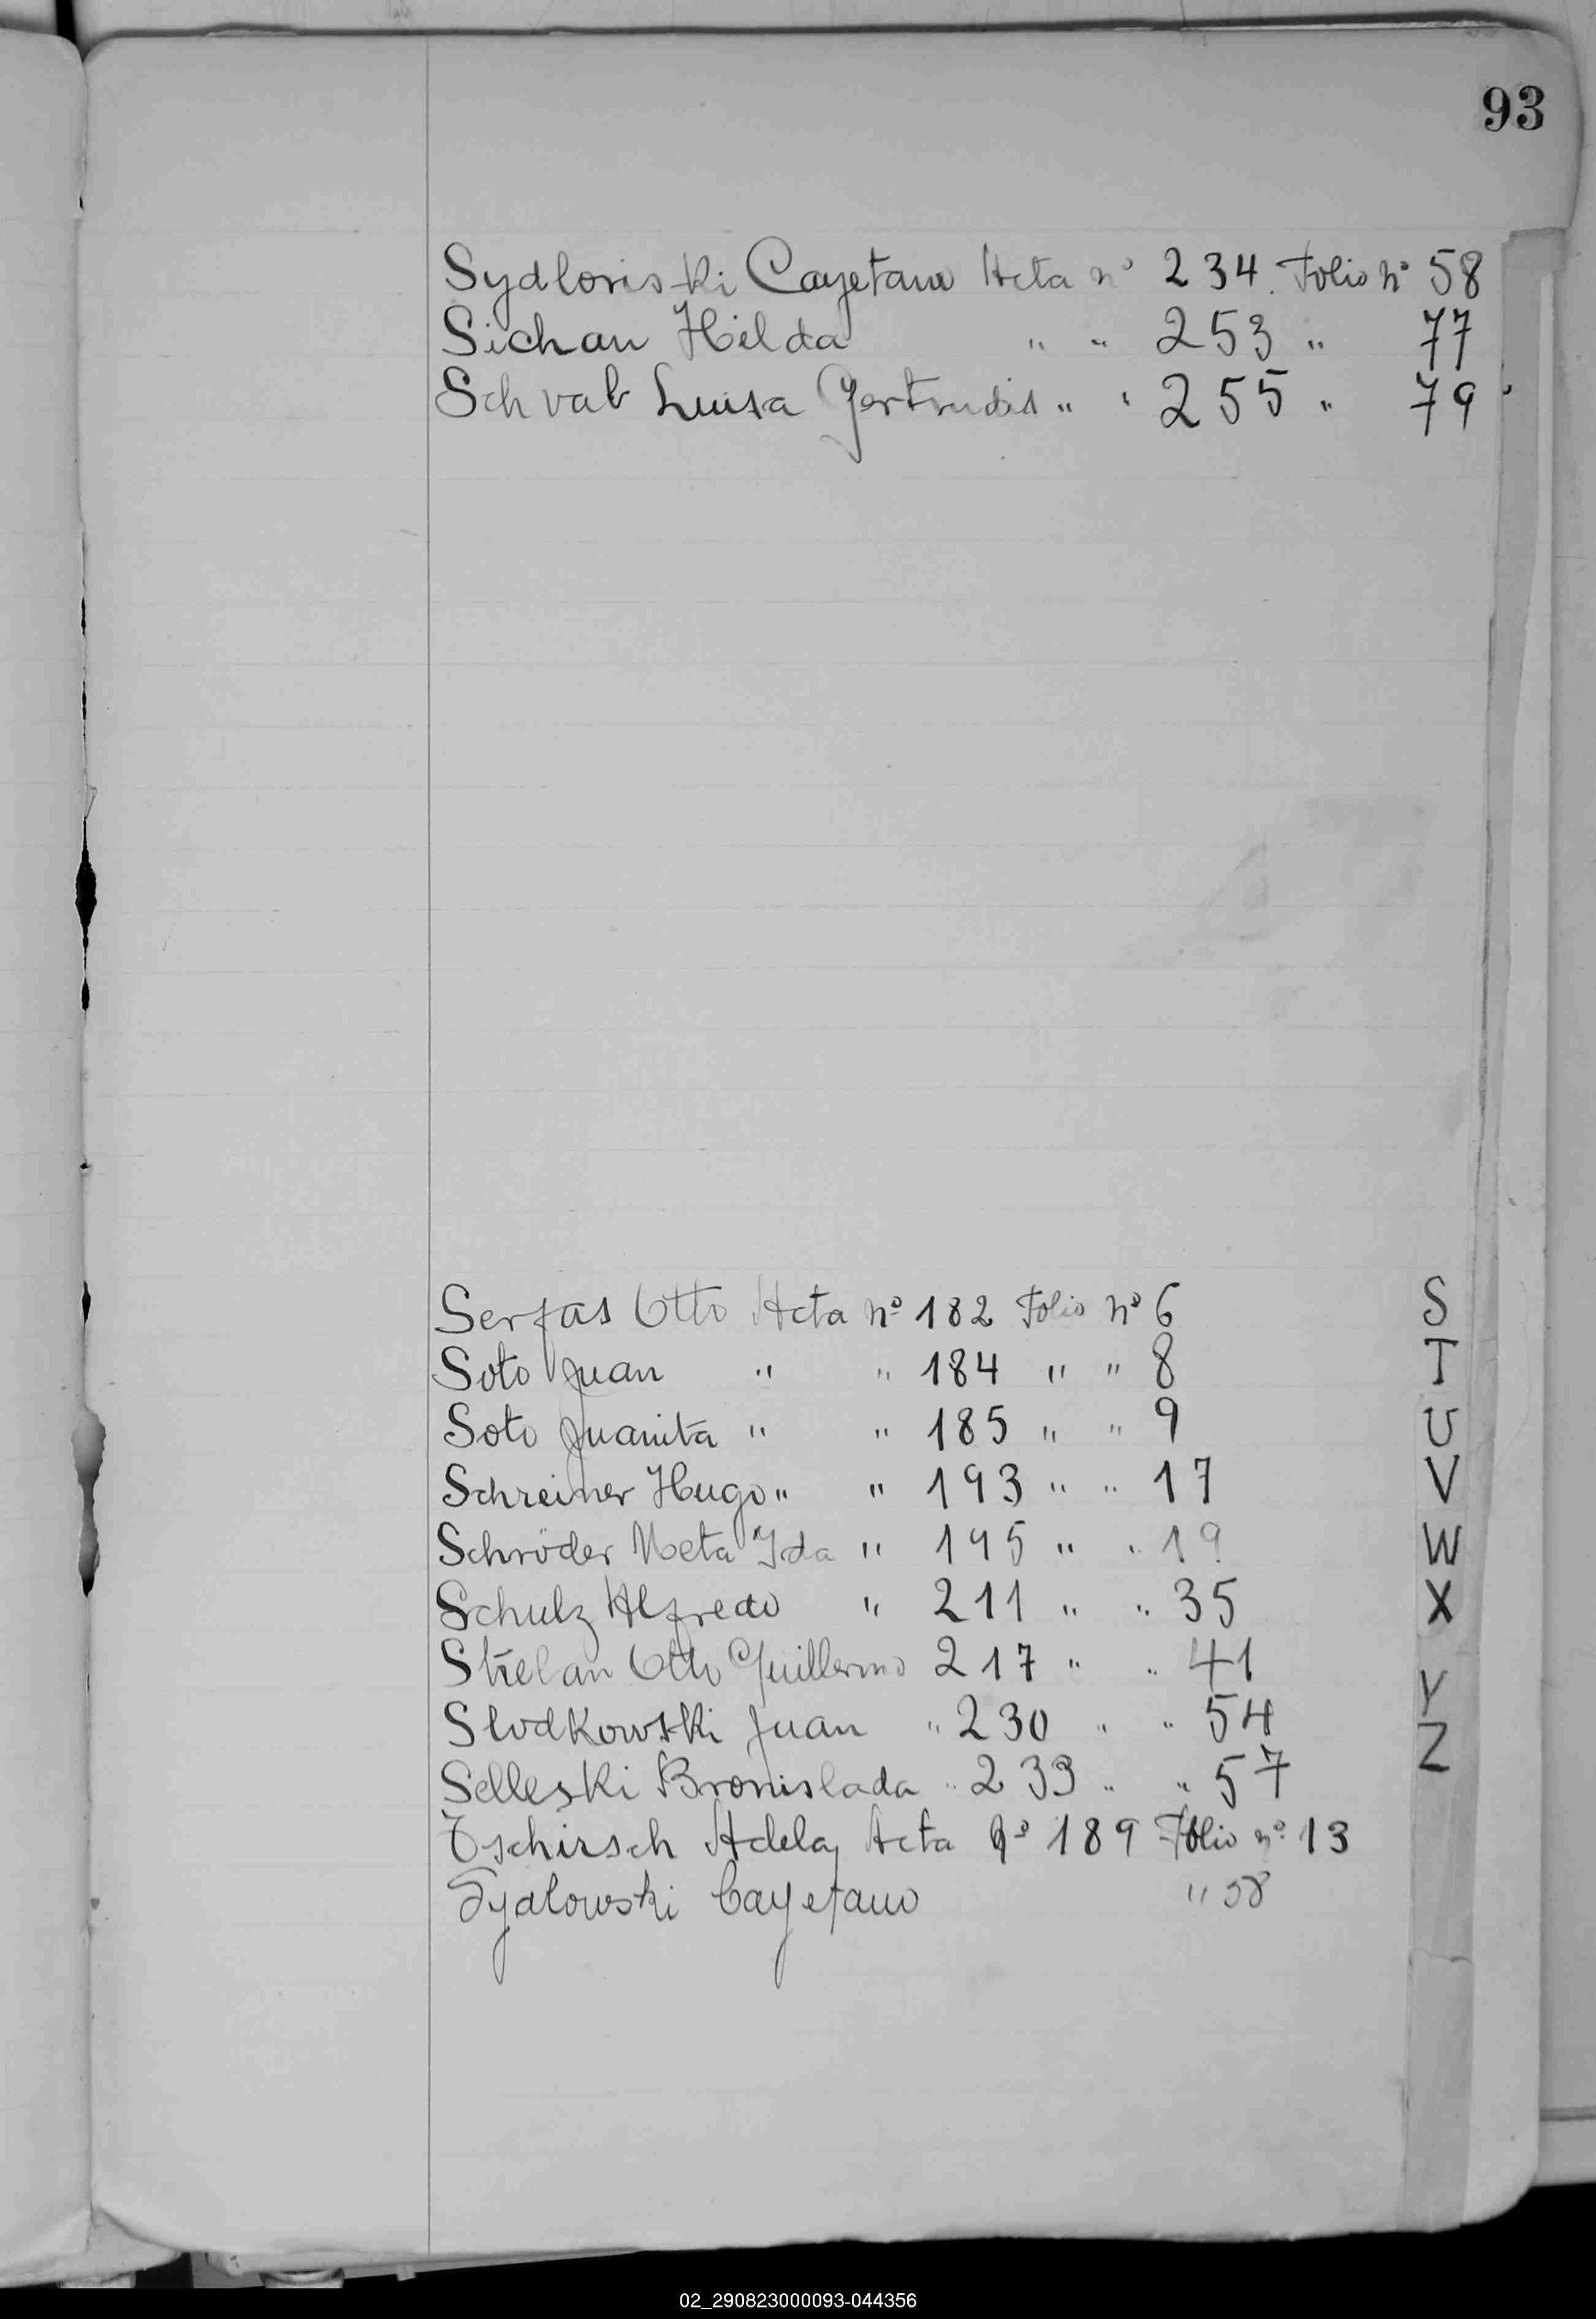 93
Sydloriski Cayetano Acta nº 234. Folio nº 58
Sichau Hilda " " 253 " 77
Schvab Luisa Gertrudis " " 255 " 79
Serfas Otto Acta nº 182 Folio nº 6
Soto Juan " " 184 " " 8
Soto Juanita " " 185 " " 9
Schreiner Hugo " " 193 " " 17
Schröder Meta Ida " 195 " " 19
Schulz Alfredo " 211 " " 35
Strelau Otto Guillermo 217 " " 41
Slodkowski Juan " 230 " " 54
Selleski Bronislada " 233 " " 57
Tschirsch Adela Acta nº 189 Folio nº 13
Sydlowski Cayetano " 58
S
T
U
V
W
X
Y
Z
02_290823000093-044356